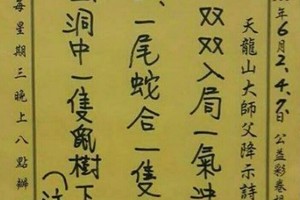 年6月2.4.7日公益彩卷
天龍山大師父降示詩
双双入局一氣
、一尾蛇合一隻
洞中一隻鼠樹下
每星期三晚上八點辦